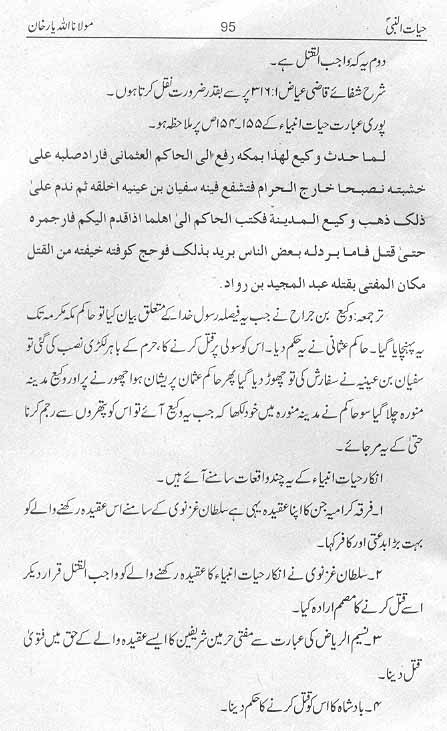 حیات النبیؐ 95 مولانا اللہ یار خان
دوم یہ کہ واجب القتل ہے۔
شرح شفائے قاضی عیاض ۳۱۶:۱ پر سے بقدر ضرورت نقل کرتا ہوں۔
پوری عبارت حیات انبیاء کے ۱۵۵۔۱۵۴ ص پر ملاحظہ ہو۔
لما حدث وکیع لھذا بمکه رفع الی الحاکم العثمانی فاراد صلبه علی
خشبته نصبحا خارج الحرام فتشفع فینه سفیان بن عینیه اخلقه ثم ندم علیٰ
ذلک ذهب وکیع المدینة فکتب الحاکم الیٰ اهلما اذاقدم الیکم فارجمره
حتیٰ قتل فاما بردله بعض الناس برید بذلک فوحج کوفته خیفته من القتل
مکان المفتی بقتله عبد المجید بن رواد.
ترجمہ: وکیع بن جراح نے جب یہ فیصلہ رسول خدا کے متعلق بیان کیا تو حاکم مکہ مکرمہ تک
یہ پہنچایا گیا۔ حاکم عثمانی نے یہ حکم دیا۔ اس کو سولی پر قتل کرنے کا، حرم کے باہر لکڑی نصب کی گئی تو
سفیان بن عینیہ نے سفارش کی تو چھوڑ دیا گیا پھر حاکم عثمان پریشان ہوا چھورنے پر اور وکیع مدینہ
منورہ چلا گیا سو حاکم نے مدینہ منورہ میں خود لکھا کہ جب یہ وکیع آئے تو اس کو پتھروں سے رجم کرنا
حتیٰ کے یہ مر جائے۔
انکار حیات انبیاء کے یہ چند واقعات سامنے آئے ہیں۔
۱۔ فرقہ کرامیہ جن کا اپنا عقیدہ یہی ہے سلطان غزنوی کے سامنے اس عقیدہ رکھنے والے کو
بہت بڑا بدعتی اور کافر کہا۔
۲۔ سلطان غزنوی نے انکار حیات انبیاء کا عقیدہ رکھنے والے کو واجب القتل قرار دیکر
اسے قتل کرنے کا مصمم ارادہ کیا۔
۳۔ نسیم الریاض کی عبارت سے مفتی حرمین شریفین کا ایسے عقیدہ والے کے حق میں فتویٰ
قتل دینا۔
۴۔ بادشاہ کا اس کو قتل کرنے کا حکم دینا۔